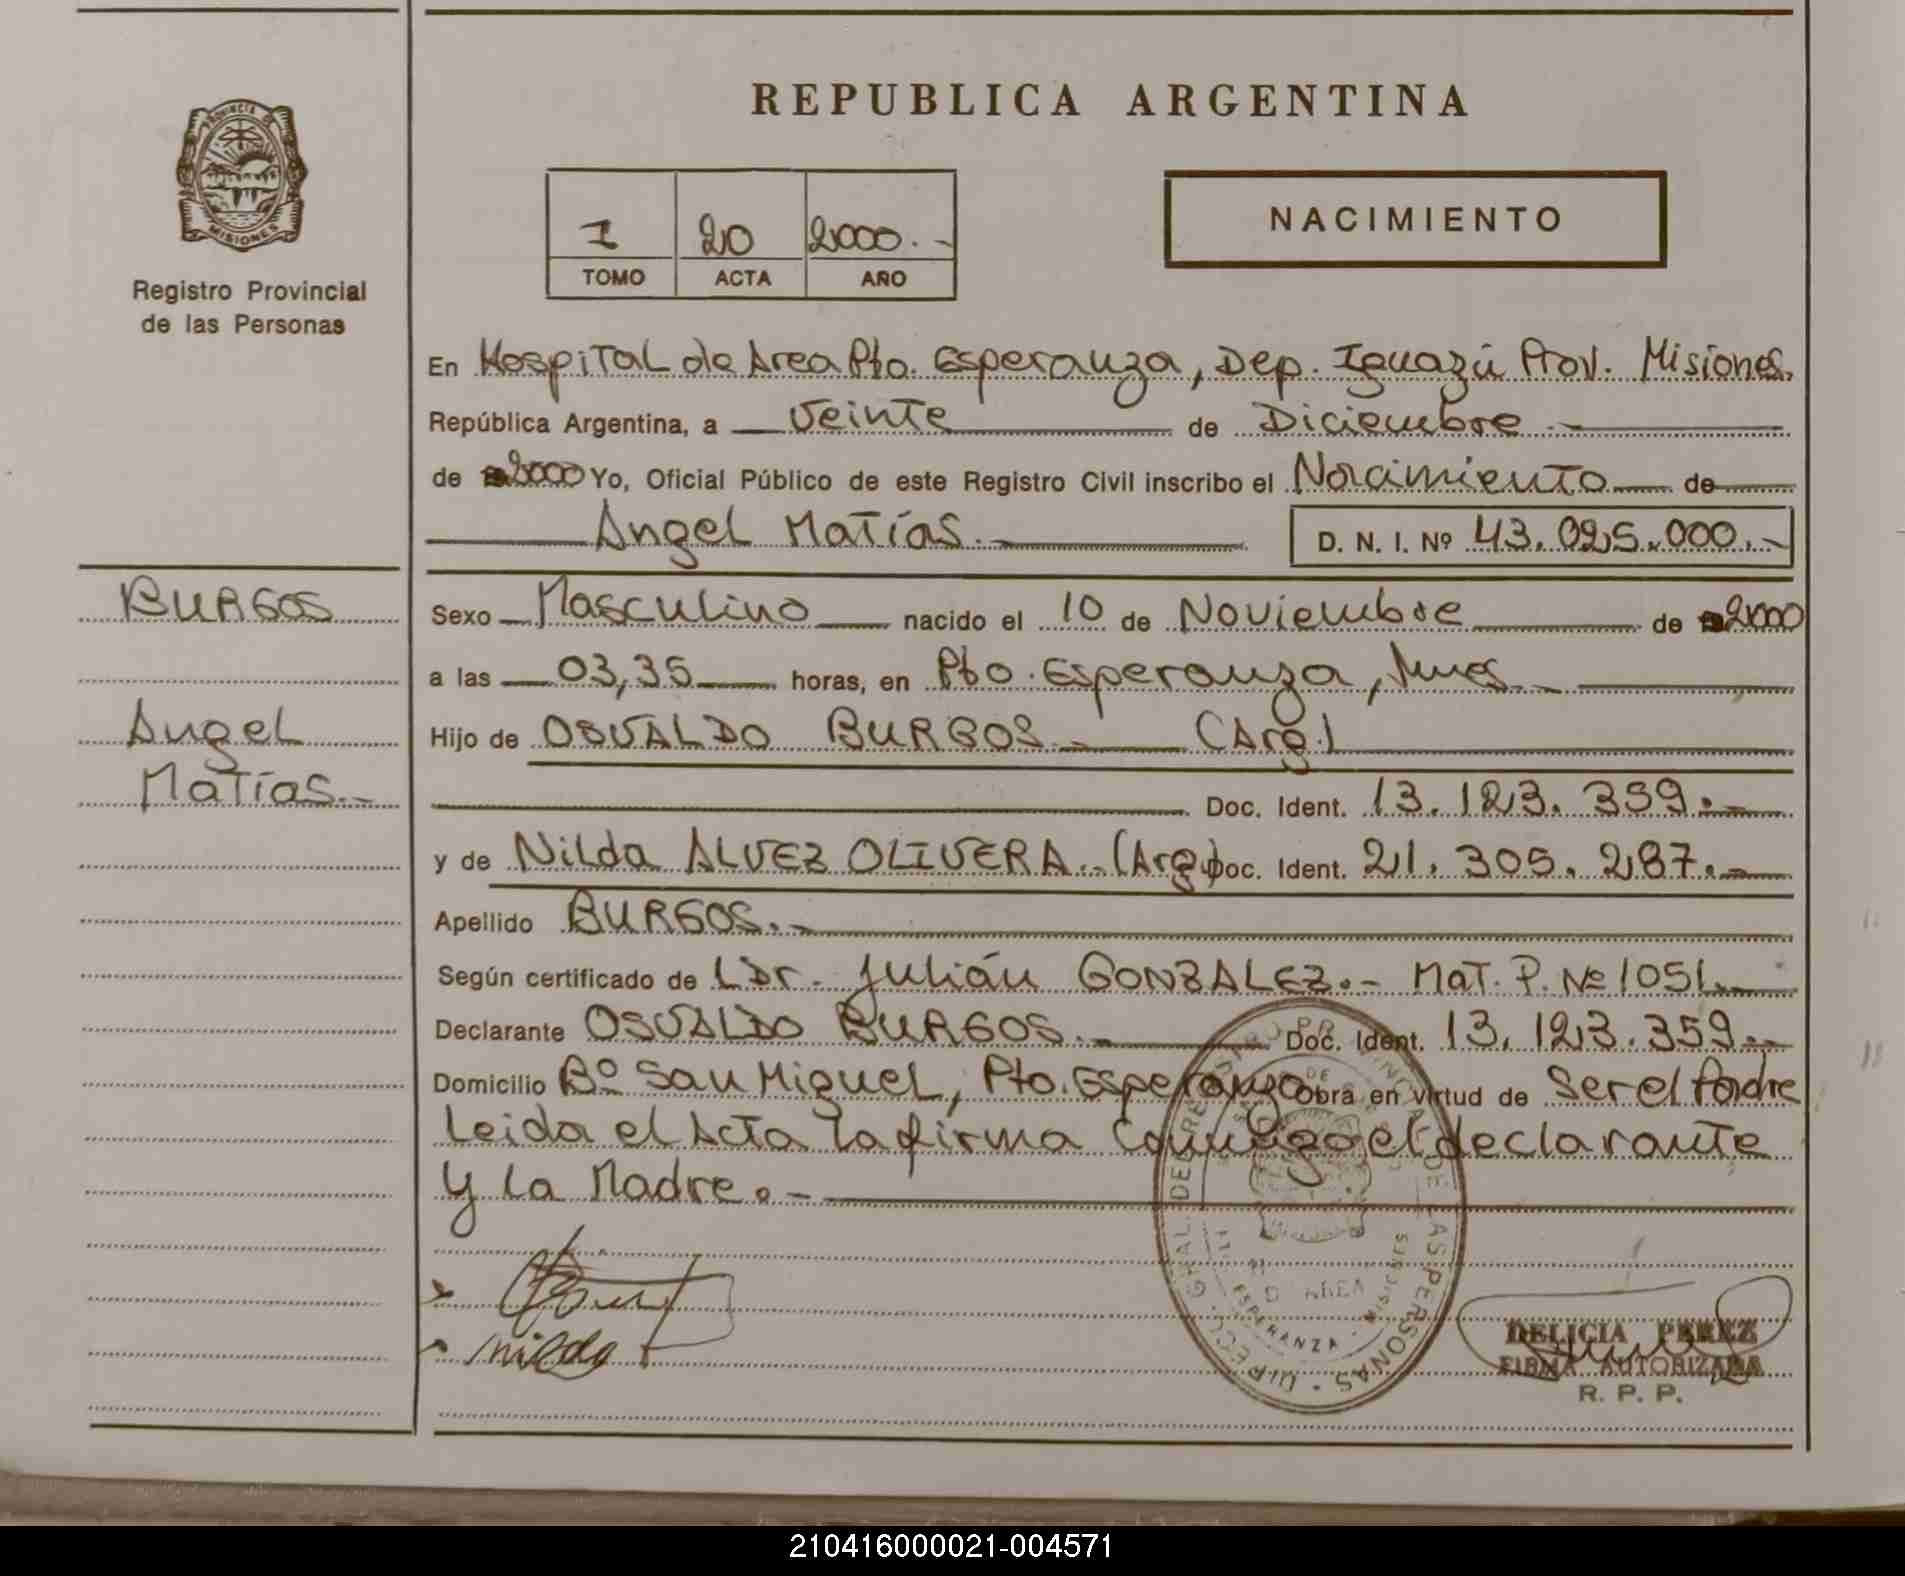 REPUBLICA ARGENTINA
PROVINCIA DE
MISIONES
Registro Provincial
de las Personas
I 20 2000.-
TOMO ACTA AÑO
NACIMIENTO
En Hospital de Area Pto. Esperanza, Dep. Iguazú Prov. Misiones.
República Argentina, a veinte de Diciembre.-
de 2000 Yo, Oficial Público de este Registro Civil inscribo el Nacimiento de
Angel Matías.- D. N. I. Nº 43.025.000.-
BURGOS
Angel
Matías.-
Sexo Masculino nacido el 10 de Noviembre de 2000
a las 03,35 horas, en Pto. Esperanza, Mnes.-
Hijo de OSVALDO BURGOS.- (Arg.)
Doc. Ident. 13.123.359.-
y de Nilda ALVEZ OLIVERA.-(Arg) Doc. Ident. 21.305.287.-
Apellido BURGOS.-
Según certificado de Dr. Julián GONZALEZ.- Mat. P. Nº 1051.-
Declarante OSVALDO BURGOS.- Doc. Ident. 13.123.359.-
Domicilio Bº San Miguel, Pto. Esperanza Obra en virtud de Ser el Padre
Leida el Acta la firma Conmigo el declarante
y la Madre.-
Nilda
DELICIA PEREZ
FIRMA AUTORIZADA
R. P. P.
210416000021-004571